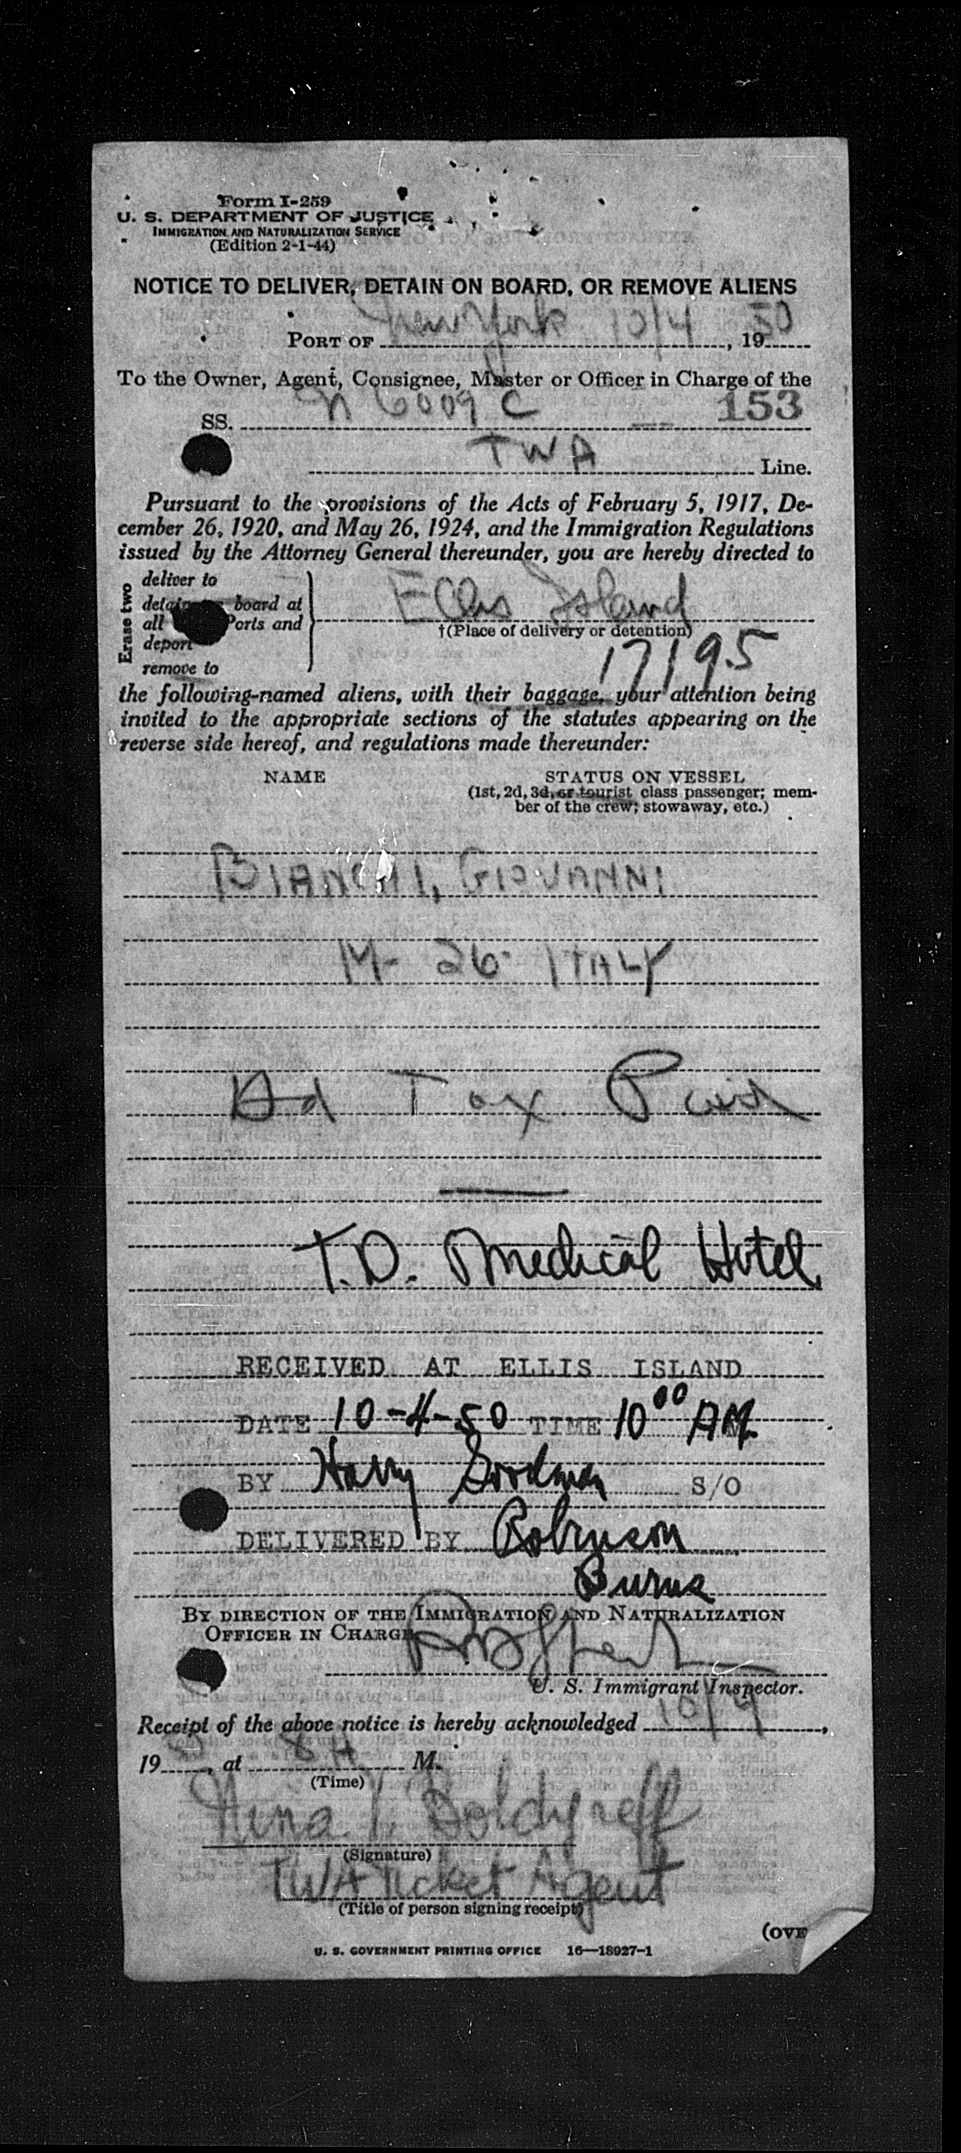 Form I-259
U. S. DEPARTMENT OF JUSTICE
IMMIGRATION AND NATURALIZATION SERVICE
(Edition 2-1-44)
NOTICE TO DELIVER, DETAIN ON BOARD, OR REMOVE ALIENS
PORT OF New York 10/4, 1950
To the Owner, Agent, Consignee, Master or Officer in Charge of the
SS. N 6009 C 153
TWA Line.
Pursuant to the provisions of the Acts of February 5, 1917, De-
cember 26, 1920, and May 26, 1924, and the Immigration Regulations
issued by the Attorney General thereunder, you are hereby directed to
Erase two
deliver to
board at
all Ports and
deport
remove to
Ellis Island
†(Place of delivery or detention)
17195
the following-named aliens, with their baggage, your attention being
invited to the appropriate sections of the statutes appearing on the
reverse side hereof, and regulations made thereunder:
NAME STATUS ON VESSEL
(1st, 2d, 3d, or tourist class passenger; mem-
ber of the crew; stowaway, etc.)
BIANCHI, GIOVANNI
M- 26- ITALY
Hd Tax Paid
T.D. Medical Hotel
RECEIVED AT ELLIS ISLAND
DATE 10-4-50 TIME 10 00 AM.
BY Harry Goodman S/O
DELIVERED BY Robinson
Burns
BY DIRECTION OF THE IMMIGRATION AND NATURALIZATION
OFFICER IN CHARGE
U. S. Immigrant Inspector.
Receipt of the above notice is hereby acknowledged 10/4,
1950, at 8 A M.
(Time)
Nina T. Boldyreff
(Signature)
TWA Ticket Agent
(Title of person signing receipt)
(OVE
U. S. GOVERNMENT PRINTING OFFICE 16—18927-1